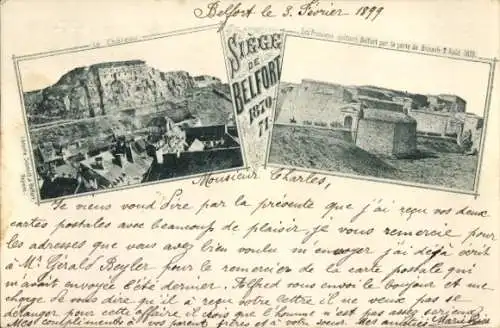 Belfort le 3. Février 1899
Le Château
SIÈGE
DE
BELFORT
1870
71
Les Prussiens quittant Belfort par la porte de Brisach 2 Août 1873.
Monsieur Charles,
Je viens vond dire par la présente que j'ai reçu vos deux
cartes postales avec beaucoup de plaisir, je vous remercie pour
les adresses que vous avez bien voulu m'envoyer j'ai déjà écrit
à Mr. Gérald Beyler pour le remercier de la carte postale qui
m'avait envoyée l'été dernier. Alfred vous envoi le bonjour et me
charge de vous dire qu'il a reçu votre lettre il ne veux pas se
déranger pour cette affaire il vois que l'homme n'est pas
Mes compliments à vos parent frères et à votre